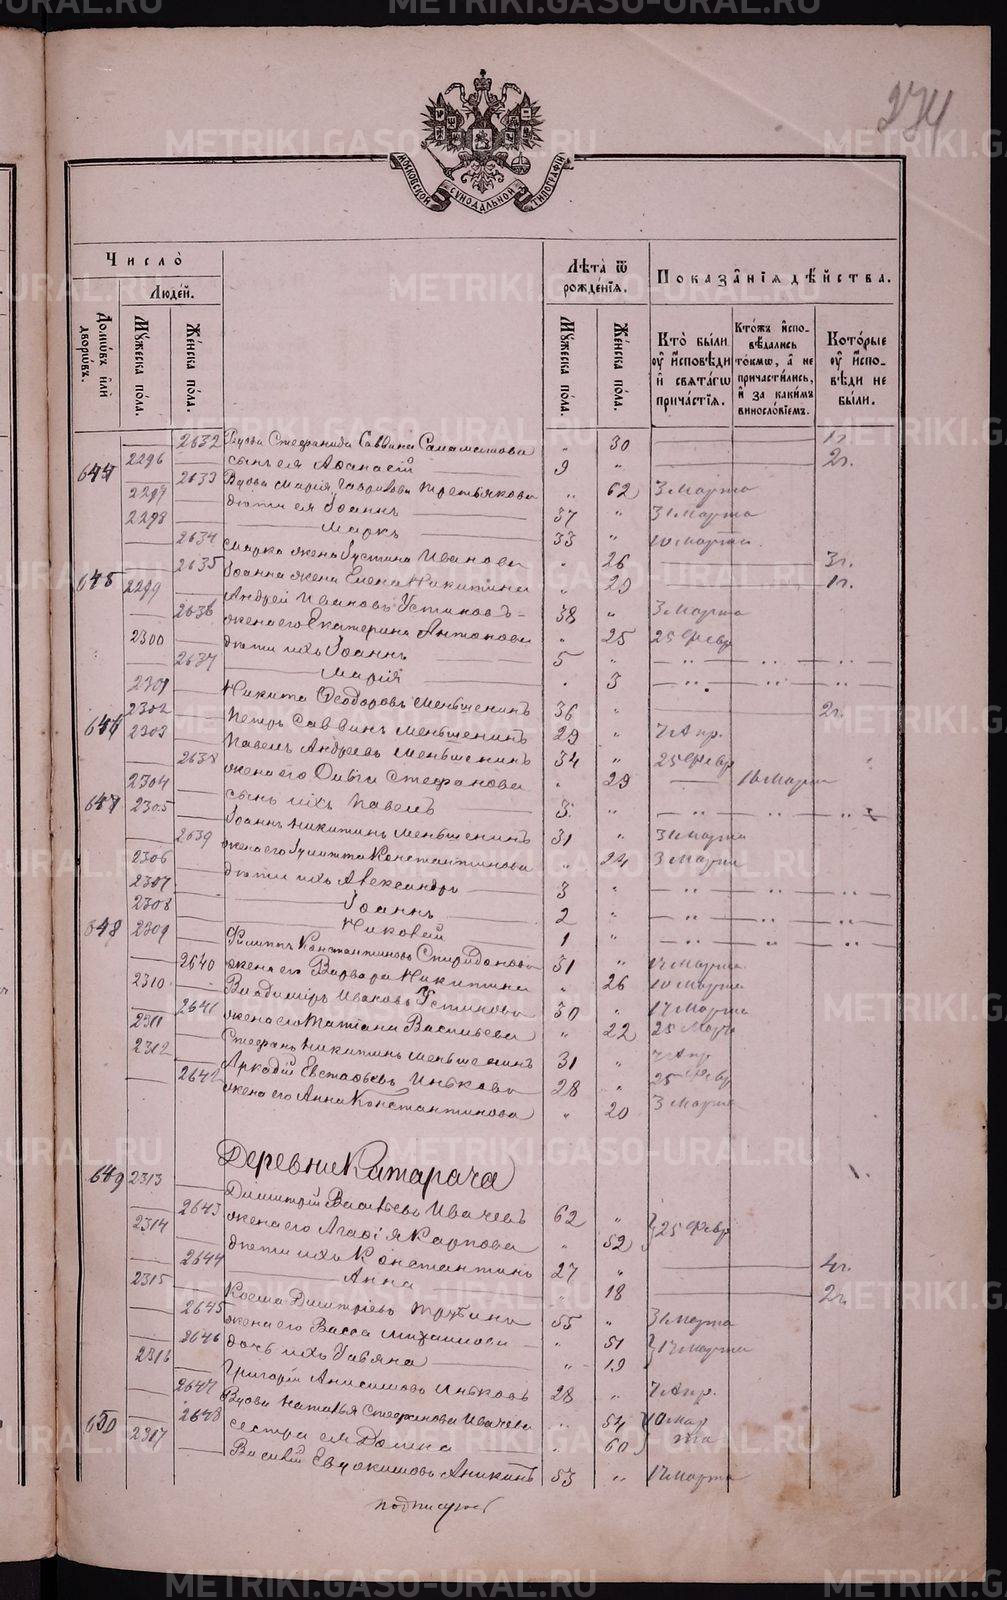 274
МОСКОВСКОЙ СѴНОДАЛЬНОЙ ТИПОГРАФІИ
Число̀
Людей.
Домѡвъ и҆лѝ дворѡвъ.
Мꙋжеска по́ла.
Же́нска по́ла.
Лѣ̑та ѿ рожде́нїѧ.
Мꙋжеска по́ла.
Же́нска по́ла.
Показа̑нїѧ дѣ́йства.
Кто̀ бы́ли ᲂу҆ и҆́сповѣди и҆ свѧта́гѡ прича́стїѧ.
Кто́жъ и҆спо-вѣ́дались то́кмѡ, а҆ не причасти́лись, и҆ за каки́мъ винослові́емъ.
Кото́рые ᲂу҆ и҆́спо-вѣди не бы́ли.
2632 Вдова Стефанида Саввина Саламатова „ 30 1 г.
2296 сынъ ея Аѳанасій 9 „ 2 г.
644 2633 Вдова Марія Гаврилова Третьякова „ 62 3 Марта
2297 дѣти ея Іоаннъ 37 „ 31 Марта
2298 Маркъ 33 „ 10 Марта
2634 Марка жена Іустина Иванова „ 26 3 г.
2635 Іоанна жена Елена Никитина „ 29 1 г.
645 2299 Андрей Ивановъ Устиновъ 38 „ 3 Марта
2636 жена его Екатерина Антонова „ 25 25 Февр
2300 дѣти ихъ Іоаннъ 5 „ — „ — „ — „ —
2637 Марія „ 3 — „ — „ — „ —
2301 Никита Ѳеодоровъ Меньшенинъ 36 „ 2 г.
2302 Петръ Саввинъ Меньшенинъ 29 „ 7 Апр.
646 2303 Павелъ Андреевъ Меньшенинъ 34 „ 25 Февр
2638 жена его Ольга Стефанова „ 29 — 16 Марта
2304 сынъ ихъ Павелъ 3 „ — „ — „ — „ —
647 2305 Іоаннъ Никитинъ Меньшенинъ 31 „ 31 Марта
2639 жена его Іулитта Константинова „ 24 3 Марта
2306 дѣти ихъ Александръ 3 „ — „ — „ — „ —
2307 Іоаннъ 2 „ — „ — „ — „ —
2308 Николай 1 „ — „ — „ — „ —
648 2309 Филиппъ Константиновъ Спиридоновъ 31 „ 17 Марта
2640 жена его Варвара Никитина „ 26 10 Марта
2310 Владиміръ Ивановъ Устиновъ 30 „ 17 Марта
2641 жена его Татіана Васильева „ 22 25 Март
2311 Стефанъ Никитинъ Меньшенинъ 31 „ 7 Апр
2312 Аркадій Евстафьевъ Иньковъ 28 „ 25 Февр
2642 жена его Анна Константинова „ 20 3 Марта
Деревни Катарача
649 2313 Димитрій Васильевъ Ивачевъ 62 „ 25 Февр
2643 жена его Агафія Карпова „ 52
2314 дѣти ихъ Константинъ 27 „ 4 г.
2644 Анна „ 18 2 г.
2315 Косма Димитріевъ Трубинъ 55 „ 31 Марта
2645 жена его Васса Михаилова „ 51 17 Марта
2646 дочь ихъ Уліяна „ 19
2316 Григорій Анисимовъ Иньковъ 28 „ 7 Апр.
2647 Вдова Наталья Стефанова Ивачева „ 54 10 Мар
2648 сестра ея Домна „ 60 та
650 2317 Василій Евдокимовъ Аникинъ 53 „ 17 Марта
METRIKI.GASO-URAL.RU